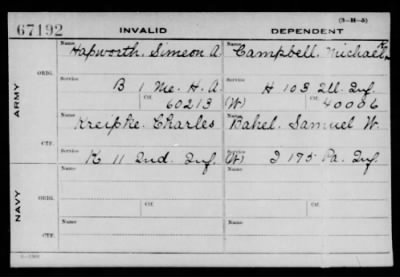 (3-H-5)
67192 INVALID DEPENDENT
Name Hapworth, Simeon A. Name Campbell, Michael
ORIG.
Service B 1 Me. H. A. Service H 103 Ill. Inf.
Ctf. 60213 (W) Ctf. 40006
ARMY
Name Kreipke, Charles Name Bakel, Samuel W.
CTF.
Service K 11 Ind. Inf. Service (W) I 175 Pa. Inf.
Name Name
ORIG.
Service Ctf. Service Ctf.
NAVY
Name Name
CTF.